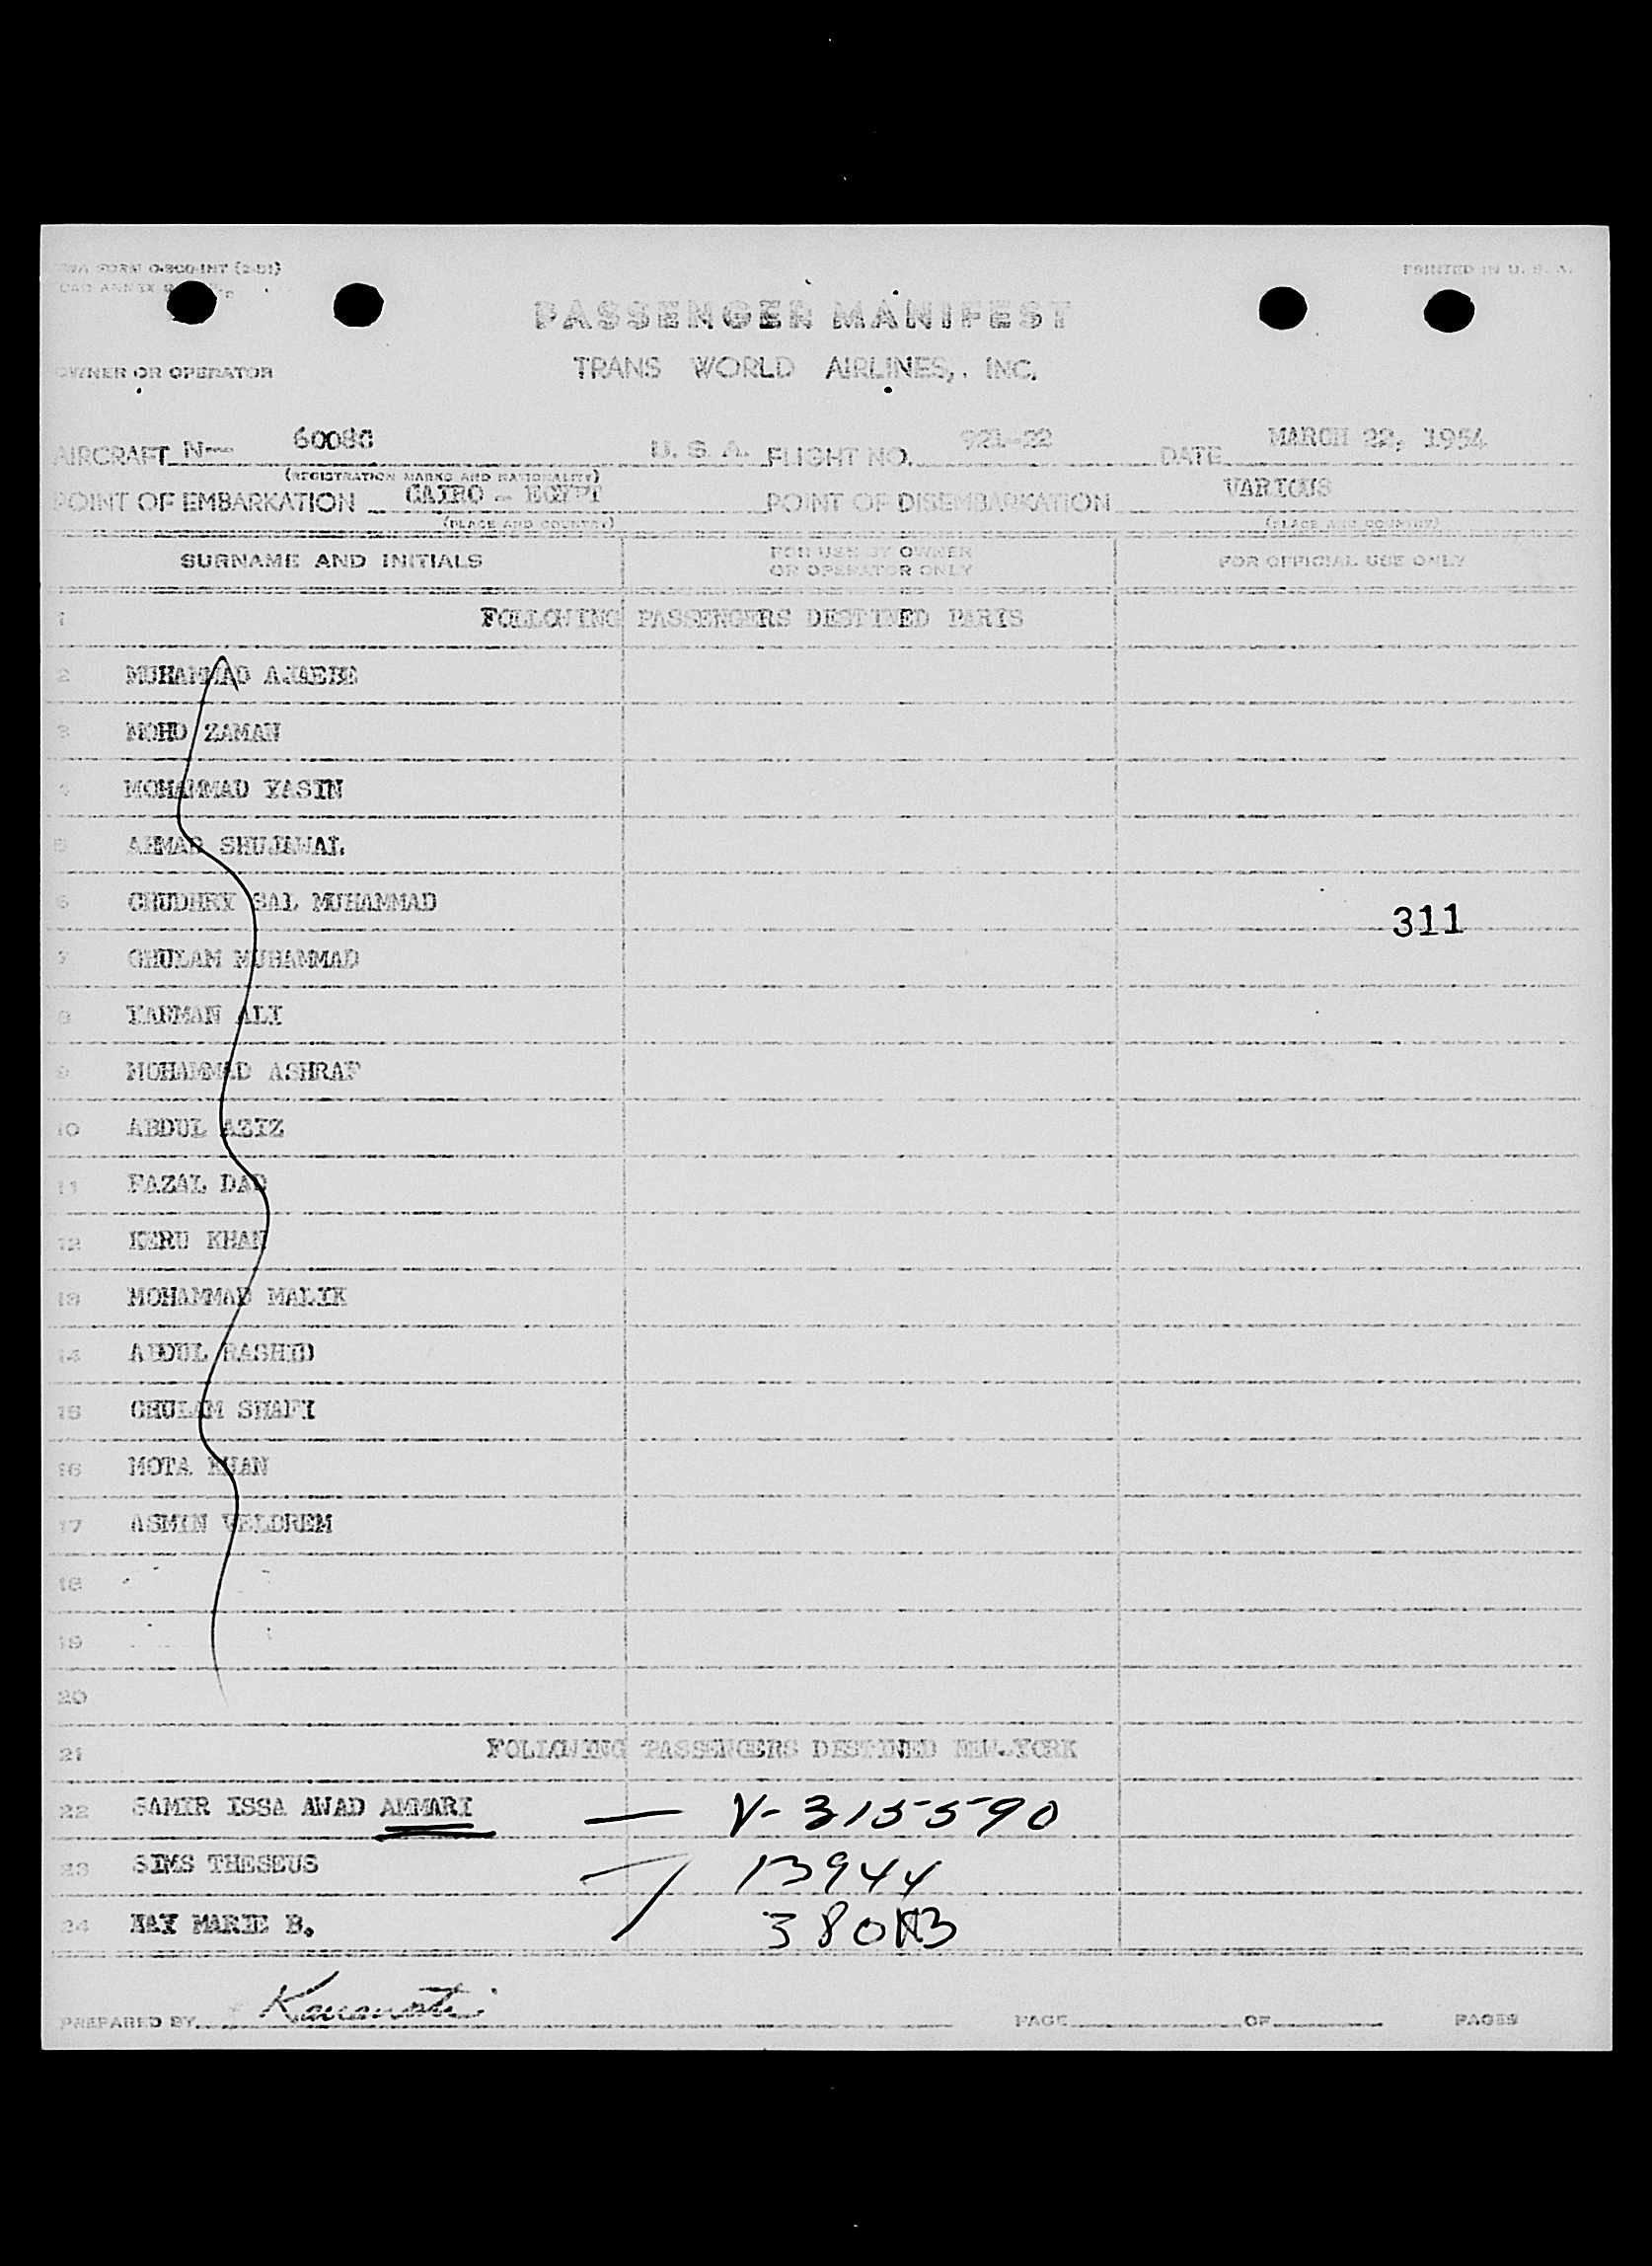 TWA FORM O-800-INT (2-51)
PRINTED IN U. S. A.
PASSENGER MANIFEST
OWNER OR OPERATOR
TRANS WORLD AIRLINES, INC.
AIRCRAFT N-- 6008C U. S. A. FLIGHT NO. 921-22 DATE MARCH 22, 1954
(REGISTRATION MARKS AND NATIONALITY)
POINT OF EMBARKATION CAIRO - EGYPT POINT OF DISEMBARKATION VARIOUS
(PLACE AND COUNTRY) (PLACE AND COUNTRY)
SURNAME AND INITIALS FOR USE BY OWNER OR OPERATOR ONLY FOR OFFICIAL USE ONLY
1 FOLLOWING PASSENGERS DESTINED PARIS
2 MUHAMMAD
3 MOHD ZAMAN
4 MOHAMMAD YASIN
5 AHMAD
6 CHUDHRY MUHAMMAD
311
7 GHULAM MUHAMMAD
8 ALI
9 MOHAMMAD ASHRAF
10 ABDUL AZIZ
11 FAZAL DAD
12 KHAN
13 MOHAMMAD MALIK
14 ABDUL RASHID
15 GHULAM SHAFI
16 MOTA KHAN
17 ASMIN
18
19
20
21 FOLLOWING PASSENGERS DESTINED NEW.YORK
22 SAMIR ISSA AWAD AMMARI — V-315590
23 SIMS THESEUS 13944
24 MARIE B. 380
PREPARED BY PAGE OF PAGES